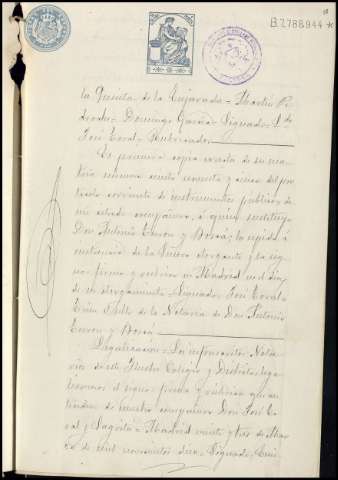 B.2788944 *
la Quinta de la Enjarada = Martin Pe
= Domingo Garcia = Signado = Ldo
José Toral = Rubricado
Es primera copia exacta de su ma
triz número ciento cincuenta y cinco del pro
tocolo corriente de instrumentos publicos de
mi citado compañero, á quien sustituyo
Don Antonio Turon y Boscá; la expido á
instancia de la Señora otorgante y la sig
no, firmo y rubrico en Madrid en el dia
de su otorgamiento = Signado = José Toral =
Sello de la Notaria de Don Antonio
Turon y Boscá
Legalización = Los infrascritos Nota
rios de este Ilustre Colegio y Distrito, lega
lizamos el signo, firma y rúbrica que an
teceden de nuestro compañero Don José To
ral y Sagristá = Madrid veinte y tres de Mar
zo de mil novecientos = Signado =